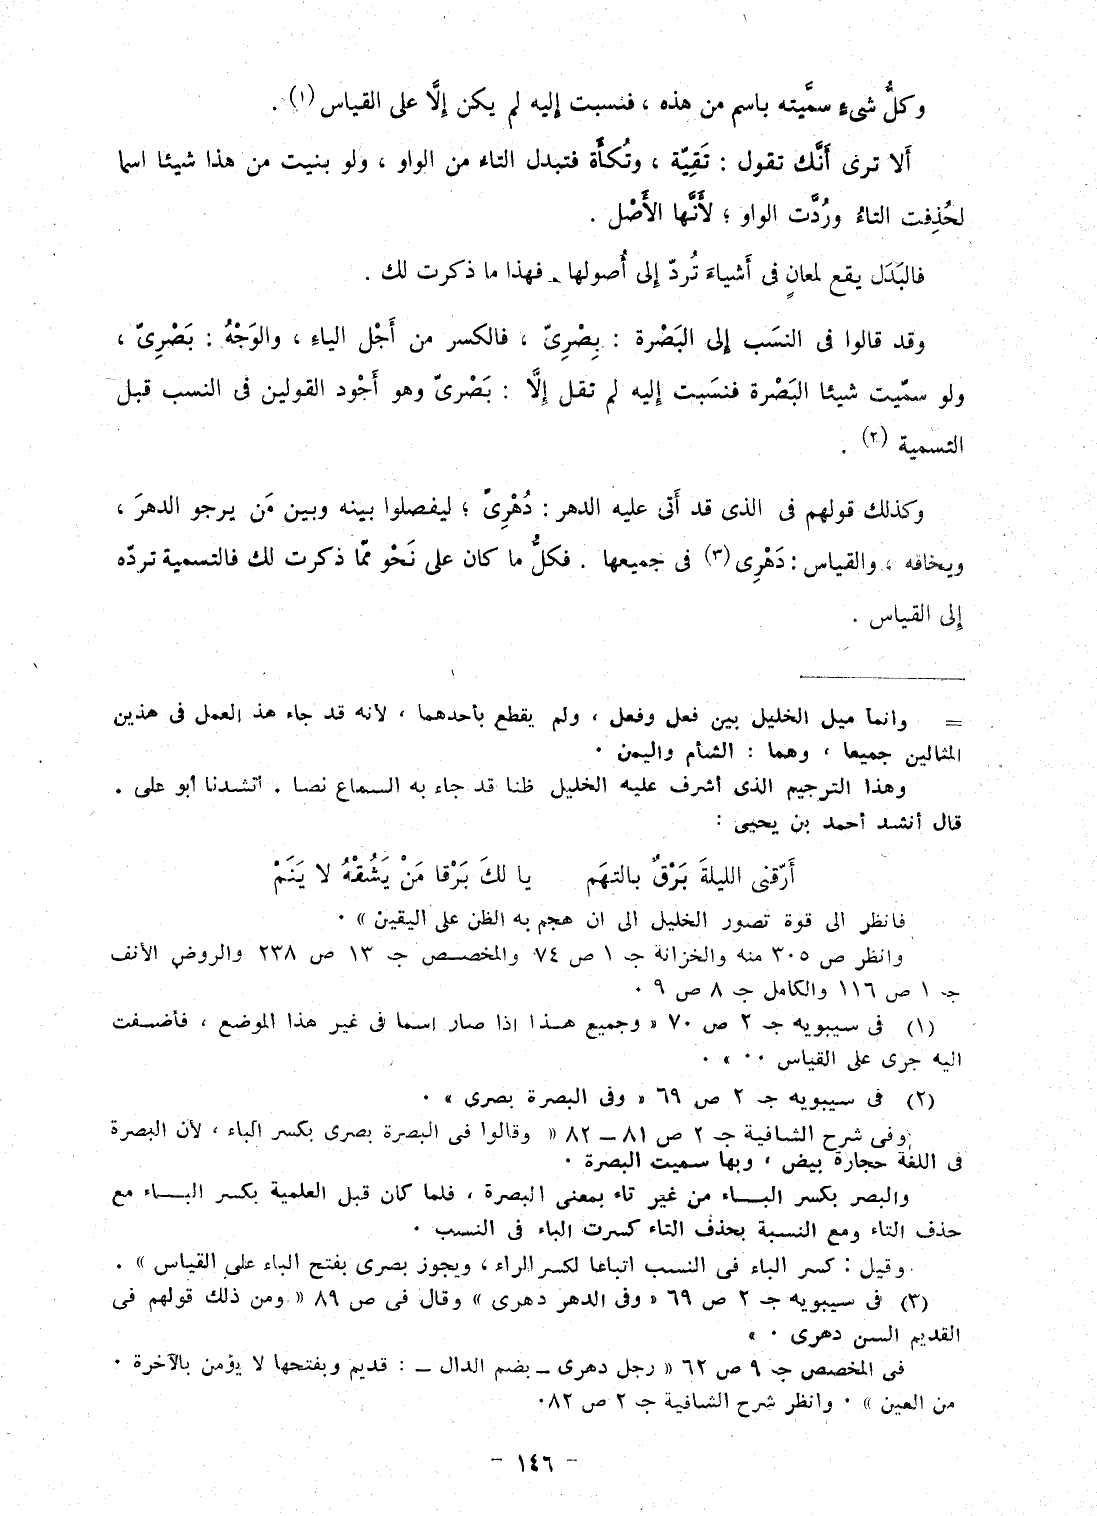 وكلُّ شىءٍ سمَّيته باسم من هذه ، فنسبت إليه لم يكن إلَّا على القياس (١) .
أَلا ترى أَنَّك تقول : تَقِيَّة ، وتُكأَة فتبدل التاء من الواو ، ولو بنيت من هذا شيئا اسما
لحُذِفت التاءُ ورُدَّت الواو ؛ لأَنَّها الأَصْل .
فالبَدَل يقع لمعانٍ فى أَشياءَ تُردّ إلى أُصولها . فهذا ما ذكرت لك .
وقد قالوا فى النسَب إلى البَصْرة : بِصْرِىّ ، فالكسر من أَجْل الياءِ ، والوَجْهُ : بَصْرِىّ ،
ولو سمّيت شيئا البَصْرة فنسَبت إليه لم تقل إلَّا : بَصْرىّ وهو أَجْود القولين فى النسب قبل
التسمية (٢) .
وكذلك قولهم فى الذى قد أَتى عليه الدهر : دُهْرِىّ ؛ ليفصلوا بينه وبين مَن يرجو الدهرَ ،
ويخافه ، والقياس : دَهْرِى (٣) فى جميعها . فكلُّ ما كان على نَحْو ممّا ذكرت لك فالتسمية تردّه
إلى القياس .
= وانما ميل الخليل بين فعل وفعل ، ولم يقطع بأحدهما ، لأنه قد جاء هذ العمل فى هذين
المثالين جميعا ، وهما : الشأم واليمن ٠
وهذا الترجيم الذى أشرف عليه الخليل ظنا قد جاء به السماع نصا . أنشدنا أبو على .
قال أنشد أحمد بن يحيى :
أَرّقنى الليلةَ بَرْقٌ بالتهَم يا لكَ بَرْقا مَنْ يَشُقْهُ لا يَنَمْ
فانظر الى قوة تصور الخليل الى ان هجم به الظن على اليقين » ٠
وانظر ص ٣٠٥ منه والخزانة جـ ١ ص ٧٤ والمخصص جـ ١٣ ص ٢٣٨ والروض الأنف
جـ ١ ص ١١٦ والكامل جـ ٨ ص ٩ ٠
(١) فى سيبويه جـ ٢ ص ٧٠ « وجميع هذا اذا صار اسما فى غير هذا الموضع ، فأضفت
اليه جرى على القياس ٠٠ » ٠
(٢) فى سيبويه جـ ٢ ص ٦٩ « وفى البصرة بصرى » ٠
وفى شرح الشافية جـ ٢ ص ٨١ – ٨٢ « وقالوا فى البصرة بصرى بكسر الباء ، لأن البصرة
فى اللغة حجارة بيض ، وبها سميت البصرة ٠
والبصر بكسر الباء من غير تاء بمعنى البصرة ، فلما كان قبل العلمية بكسر الباء مع
حذف التاء ومع النسبة بحذف التاء كسرت الباء فى النسب ٠
وقيل : كسر الباء فى النسب اتباعا لكسر الراء ، ويجوز بصرى بفتح الباء على القياس » .
(٣) فى سيبويه جـ ٢ ص ٦٩ « وفى الدهر دهرى » وقال فى ص ٨٩ « ومن ذلك قولهم فى
القديم السن دهرى ٠ »
فى المخصص جـ ٩ ص ٦٢ « رجل دهرى – بضم الدال – : قديم وبفتحها لا يؤمن بالآخرة ٠
من العين » ٠ وانظر شرح الشافية جـ ٢ ص ٨٢٠
– ١٤٦ –